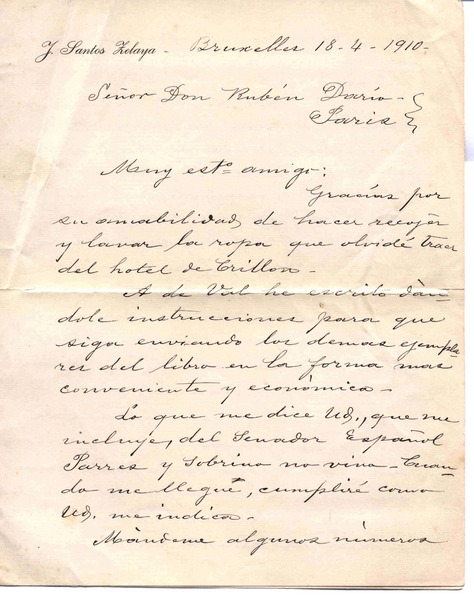 J. Santos Zelaya - Bruxelles 18-4-1910-
Señor Don Rubén Darío-
Paris
Muy est.º amigo:
Gracias por
su amabilidad, de hacer recojer
y lavar la ropa que olvidé traer
del hotel de Crillon-
A de Val he escrito dàn
dole instrucciones para que
siga enviando los demas ejempla
res del libro en la forma mas
conveniente y econòmica-
Lo que me dice Ud., que me
incluye, del Senador Español
Parres y Sobrino no vino- Cuan
do me llegue, cumpliré como
Ud. me indica-
Màndeme algunos nùmeros